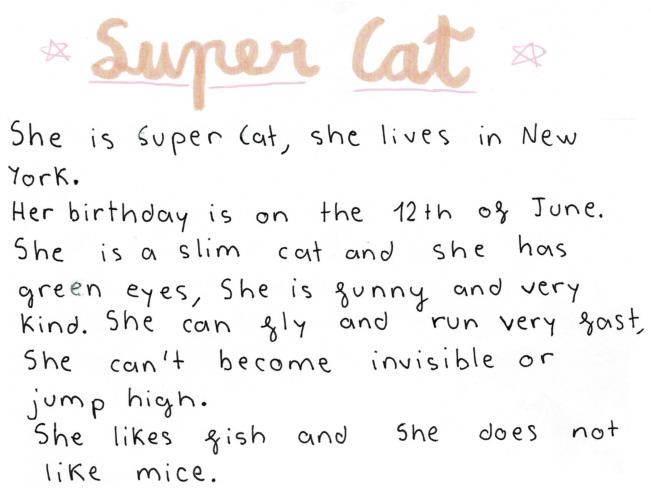 Super Cat
She is Super Cat, she lives in New
York.
Her birthday is on the 12th of June.
She is a slim cat and she has
green eyes, She is funny and very
kind. She can fly and run very fast,
She can't become invisible or
jump high.
She likes fish and she does not
like mice.